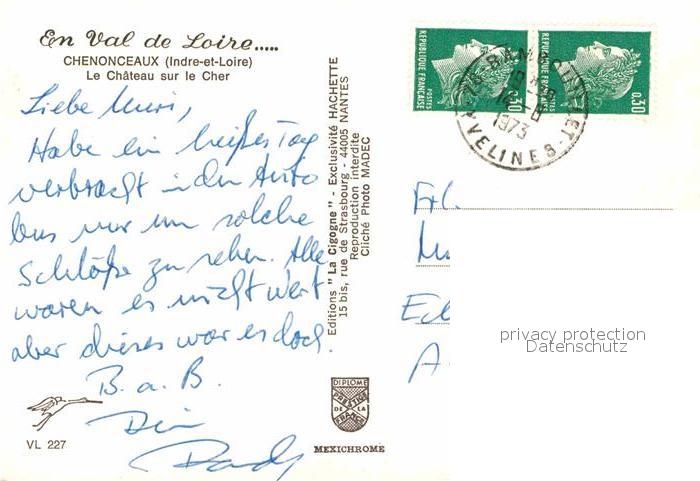 En Val de Loire.....
CHENONCEAUX (Indre-et-Loire)
Le Château sur le Cher
Liebe
Habe ein heißes Tag
verbracht in den Auto
bus nur um solche
Schlöße zu sehen. Alle
waren es nicht wert
aber dieses war es doch.
B. a. B.
VL 227
Editions "La Cigogne" - Exclusivité HACHETTE
15 bis, rue de Strasbourg - 44005 NANTES
Reproduction interdite
Cliché Photo MADEC
DIPLOME
PRESTIGE
DE LA
FRANCE
MEXICHROME
REPUBLIQUE FRANÇAISE
POSTES
0,30
REPUBLIQUE FRANÇAISE
POSTES
0,30
1973
YVELINES
privacy protection
Datenschutz